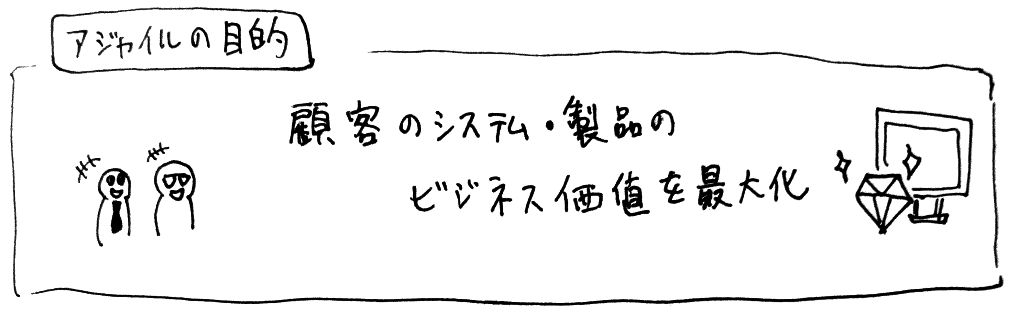 アジャイルの目的
顧客のシステム・製品の
ビジネス価値を最大化